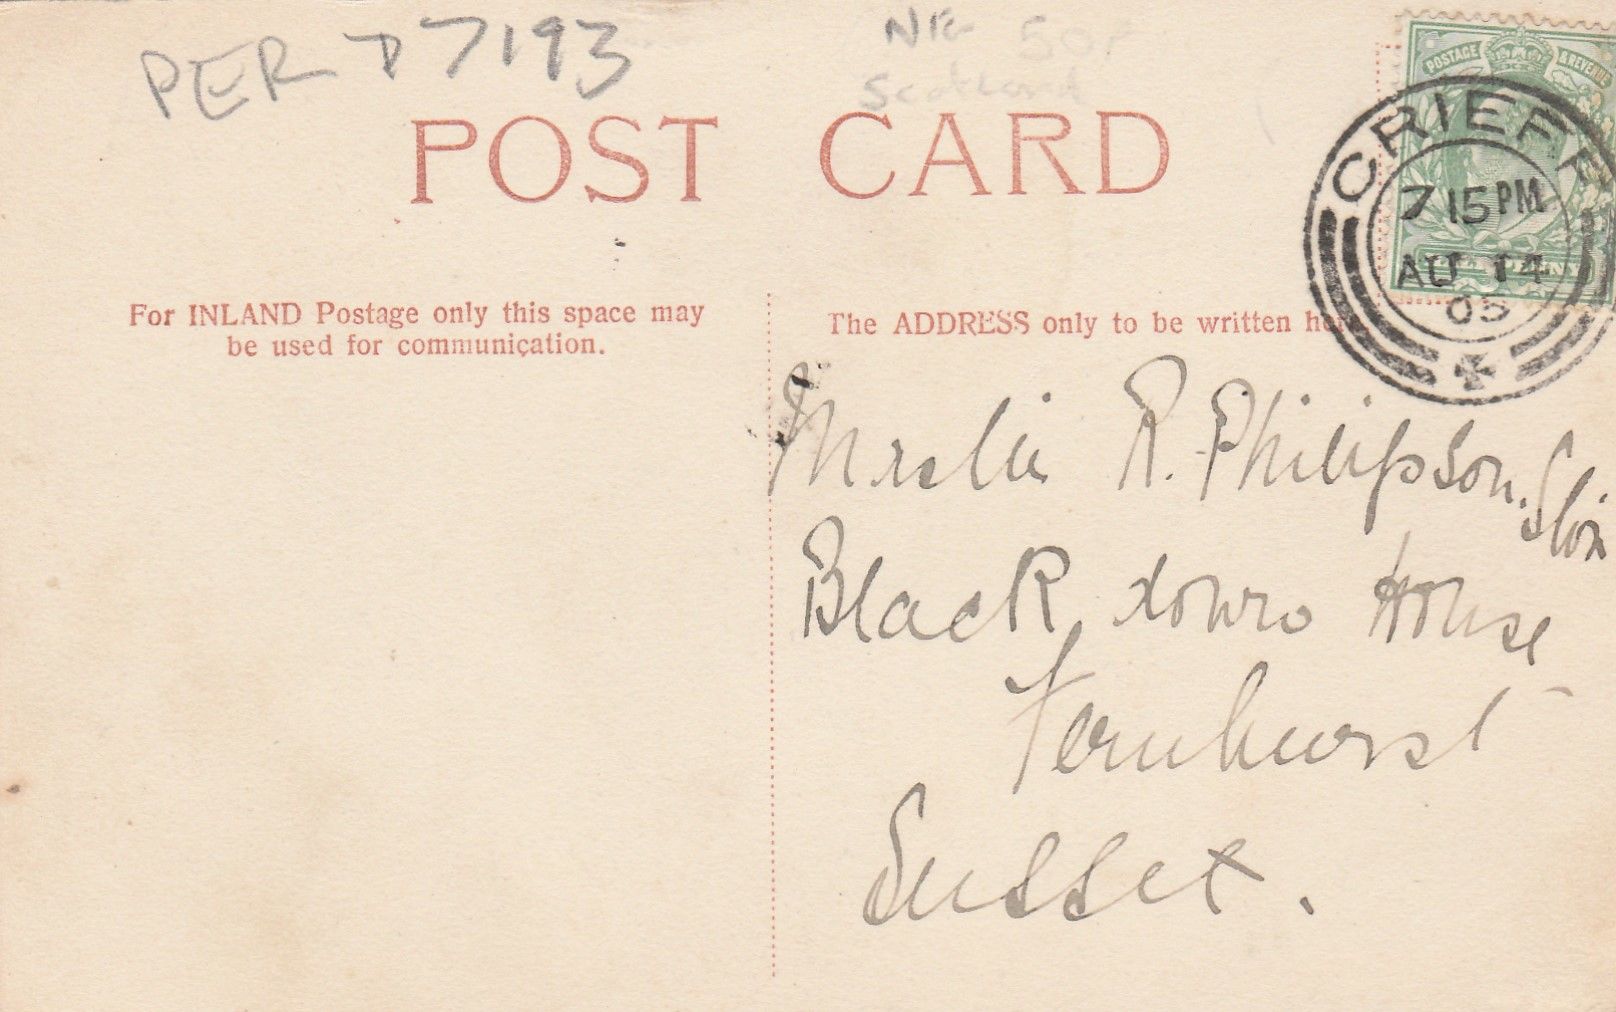 PER D7193
50P
Scotland
POST CARD
POSTAGE & REVENUE
CRIEFF
7 15 PM
AU 14
05
For INLAND Postage only this space may
be used for communication.
The ADDRESS only to be written here.
R. Philipson.
Black down House
Fernhurst
Sussex.